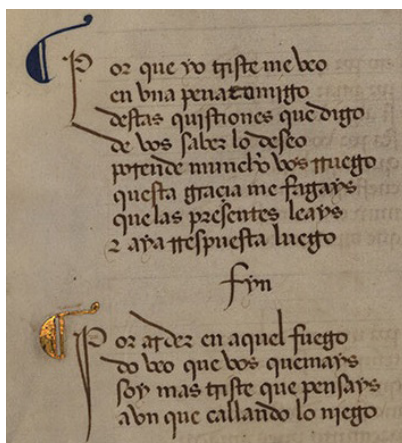 Por que yo triste me veo
en vna pena comigo
destas quistiones que digo
de vos saber lo deseo
porende mucho vos rruego
questa graçia me fagays
que las presentes leays
z aya rrespuesta luego
fyn
Por arder en aquel fuego
do veo que vos quemays
soy mas triste que pensays
avn que callando lo niego